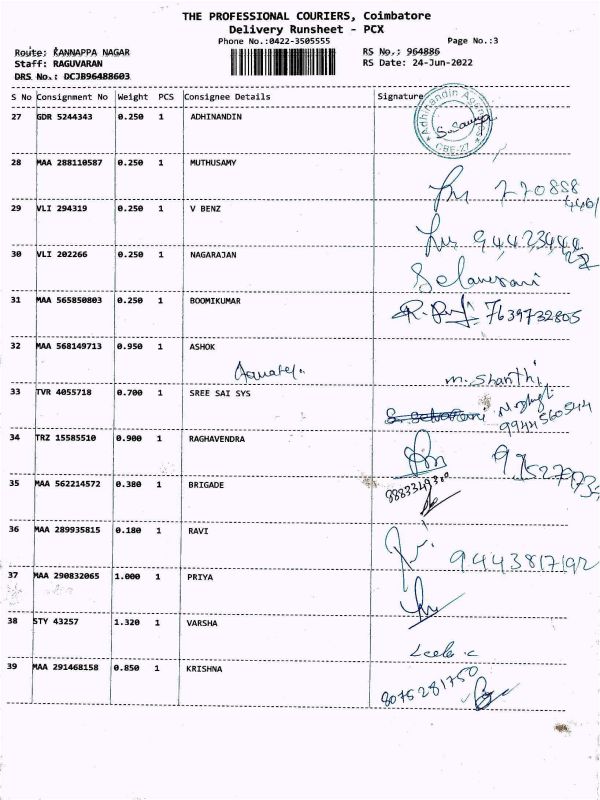 THE PROFESSIONAL COURIERS, Coimbatore
Delivery Runsheet - PCX
Phone No.:0422-3505555 Page No.:3
Route: KANNAPPA NAGAR RS No.: 964886
Staff: RAGUVARAN RS Date: 24-Jun-2022
DRS No.: DCJB96488603
S No Consignment No Weight PCS Consignee Details Signature
27 GDR 5244343 0.250 1 ADHINANDIN
Adhinandin
CBE-27
28 MAA 288110587 0.250 1 MUTHUSAMY
770858
29 VLI 294319 0.250 1 V BENZ
30 VLI 202266 0.250 1 NAGARAJAN
Selamrani
31 MAA 565850803 0.250 1 BOOMIKUMAR
7639732805
32 MAA 568149713 0.950 1 ASHOK
M. Shanthi
33 TVR 4055718 0.700 1 SREE SAI SYS
9944560544
34 TRZ 15585510 0.900 1 RAGHAVENDRA
35 MAA 562214572 0.380 1 BRIGADE
36 MAA 289935815 0.180 1 RAVI
9443817192
37 MAA 290832065 1.000 1 PRIYA
38 STY 43257 1.320 1 VARSHA
39 MAA 291468158 0.850 1 KRISHNA
8075281750